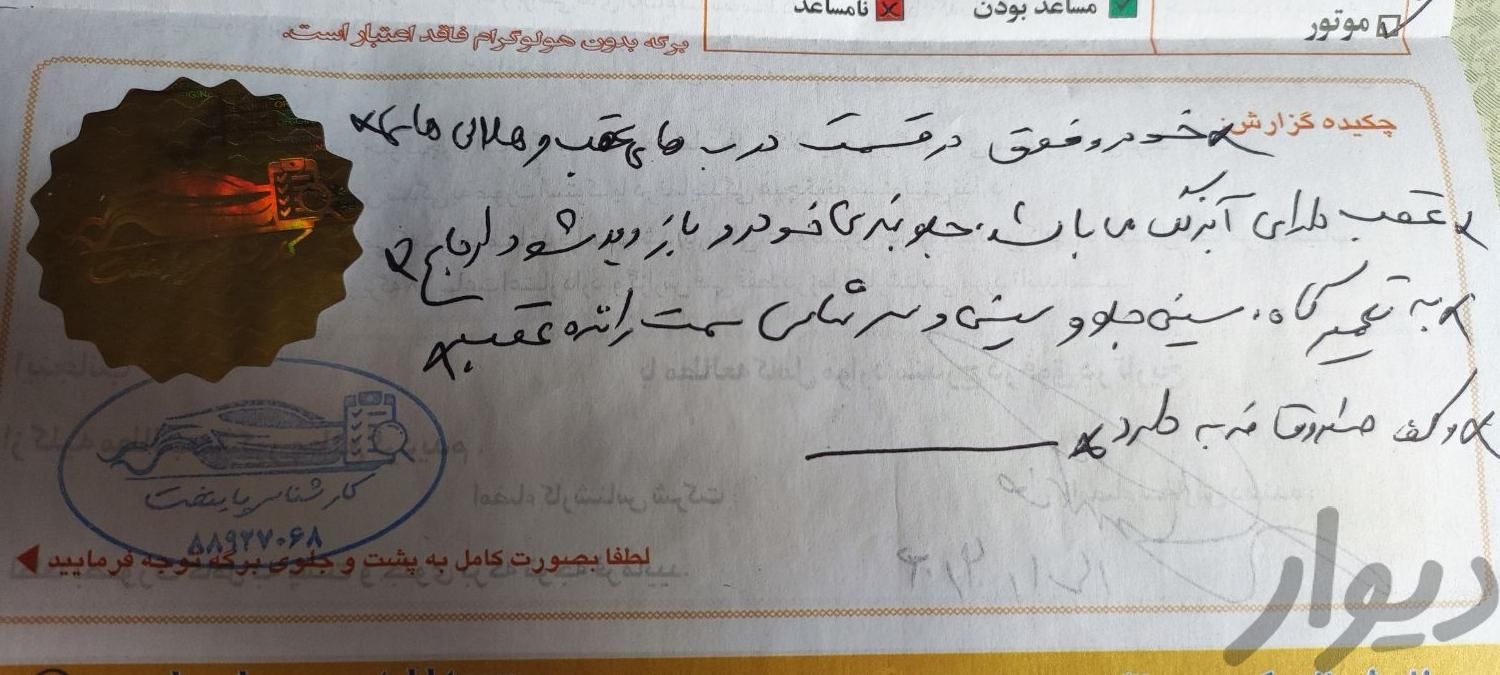 موتور
مساعد بودن
نامساعد
برگه بدون هولوگرام فاقد اعتبار است.
چکیده گزارش:
خودرو فوق در قسمت درب های عقب و هلالی های
عقب دارای آبرنگ می باشد. جلوبندی خودرو بازدید شود ارجاع
به تعمیرگاه. سینی جلو و سینی و سر شاسی سمت راننده عقب
و کف صندوق ضربه دارد
کارشناسی پایتخت
۸۸۹۲۷۰۶۸
لطفا بصورت کامل به پشت و جلوی برگه توجه فرمایید
دیوار